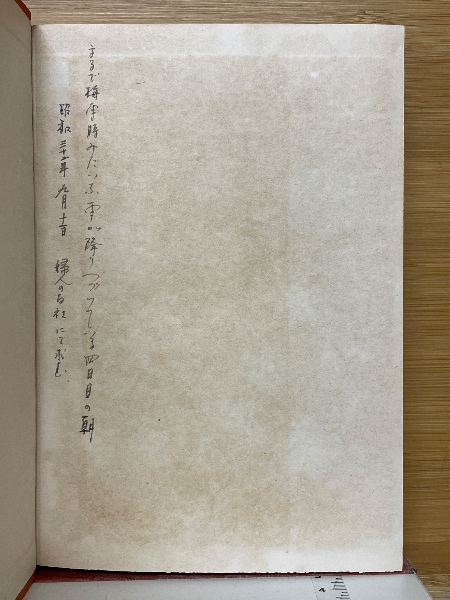 まるで梅雨時みたいな雨が降りつづいている四日目の朝
昭和三十二年 九月十一日 婦人の友社にて求む